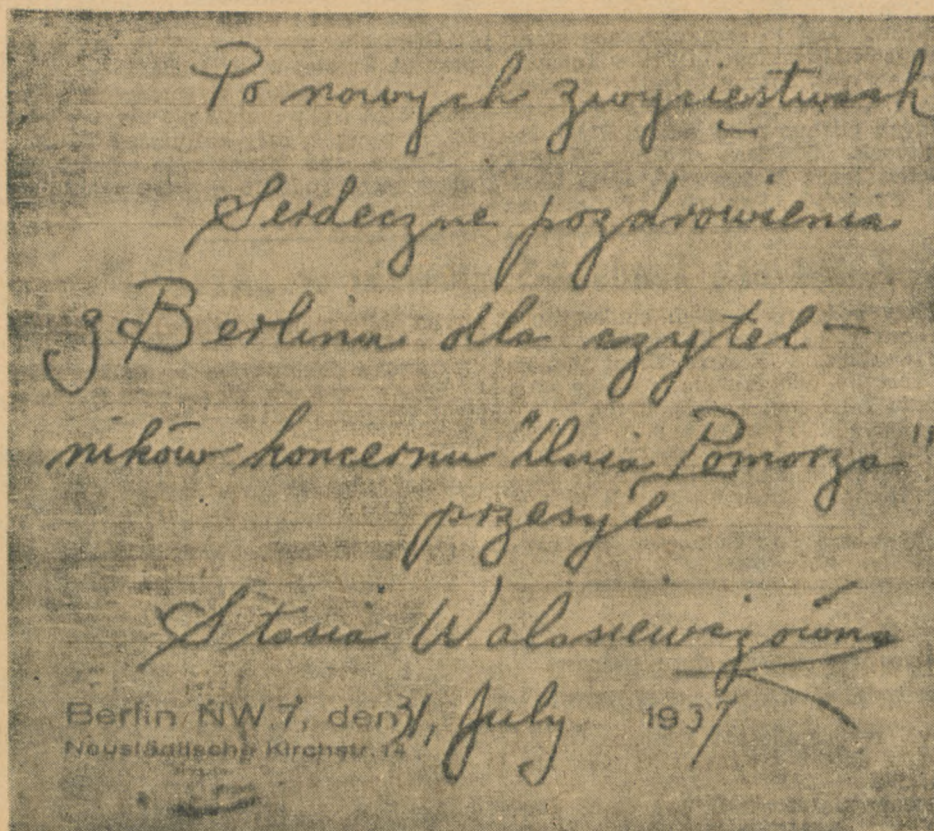 Po nowych zwycięstwach
Serdeczne pozdrowienia
z Berlina dla czytel-
ników koncernu "Dnia Pomorza"
przesyła
Stasia Walasiewiczówna
Berlin NW.7, den 31, July 1937
Neustädtische Kirchstr. 14